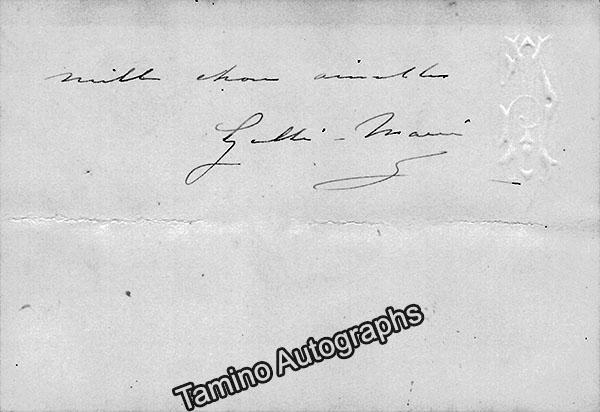 mille choses aimables
Galli-Marié
Tamino Autographs